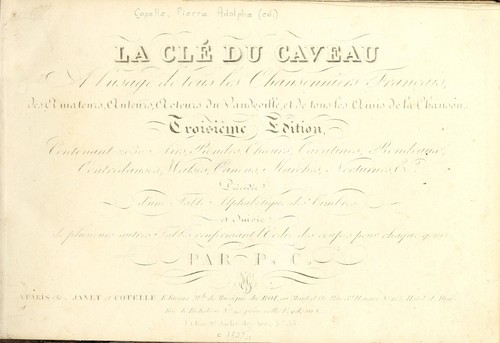 Capelle, Pierre Adolphe (ed.)
LA CLÉ DU CAVEAU
A l'usage de tous les Chansonniers Français,
des Amateurs, Auteurs, Acteurs du Vaudeville, et de tous les Amis de la Chanson.
Troisième Edition,
Contenant Airs, Rondes, Chœurs, Cavatines, Rondeaux,
Contredanses, Walses, Canons, Marches, Nocturnes, &.
Précédée
d'une Table Alphabétique des Timbres
et Suivie
de plusieurs autres Tables renfermant l'Ordre des coupes pour chaque genre
PAR P. C.
A PARIS, chez JANET et COTELLE, Editeurs, Mds. de Musique du ROI, au Mont d'Or, Rue St. Honoré